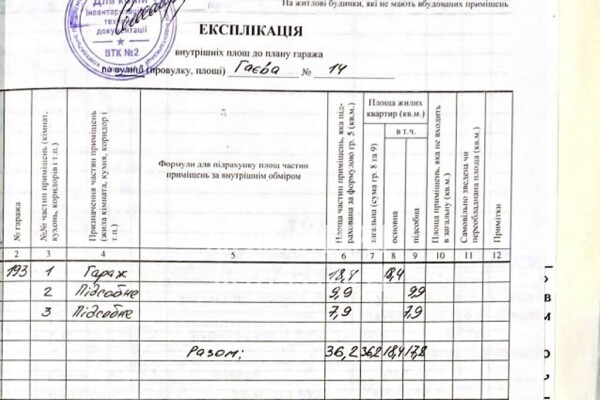 На житлові будинки, які не мають вбудованих приміщень
Для копій
інвентар
техн
документації
ВТК №2
ЕКСПЛІКАЦІЯ
внутрішніх площ до плану гаража
по вулиці (провулку, площі) Гаєва № 14
№ гаража
№№ частин приміщень (кімнат, кухонь, коридорів і т.п.)
Призначення частин приміщень (жила кімната, кухня, коридор і т.п.)
Формули для підрахунку площ частин приміщень за внутрішнім обміром
Площа частин приміщень, яка підрахована за формулою гр. 5 (кв.м.)
Площа жилих квартир (кв.м.)
загальна (сума гр. 8 та 9)
в т.ч.
основна
підсобна
Площа приміщень, яка не входить в загальну (кв.м.)
Самовільно зведена чи переобладнана площа (кв.м.)
Примітки
2 3 4 5 6 7 8 9 10 11 12
193 1 Гараж 18,4 18,4
2 Підсобне 9,9 9,9
3 Підсобне 7,9 7,9
Разом: 36,2 36,2 18,4 17,8